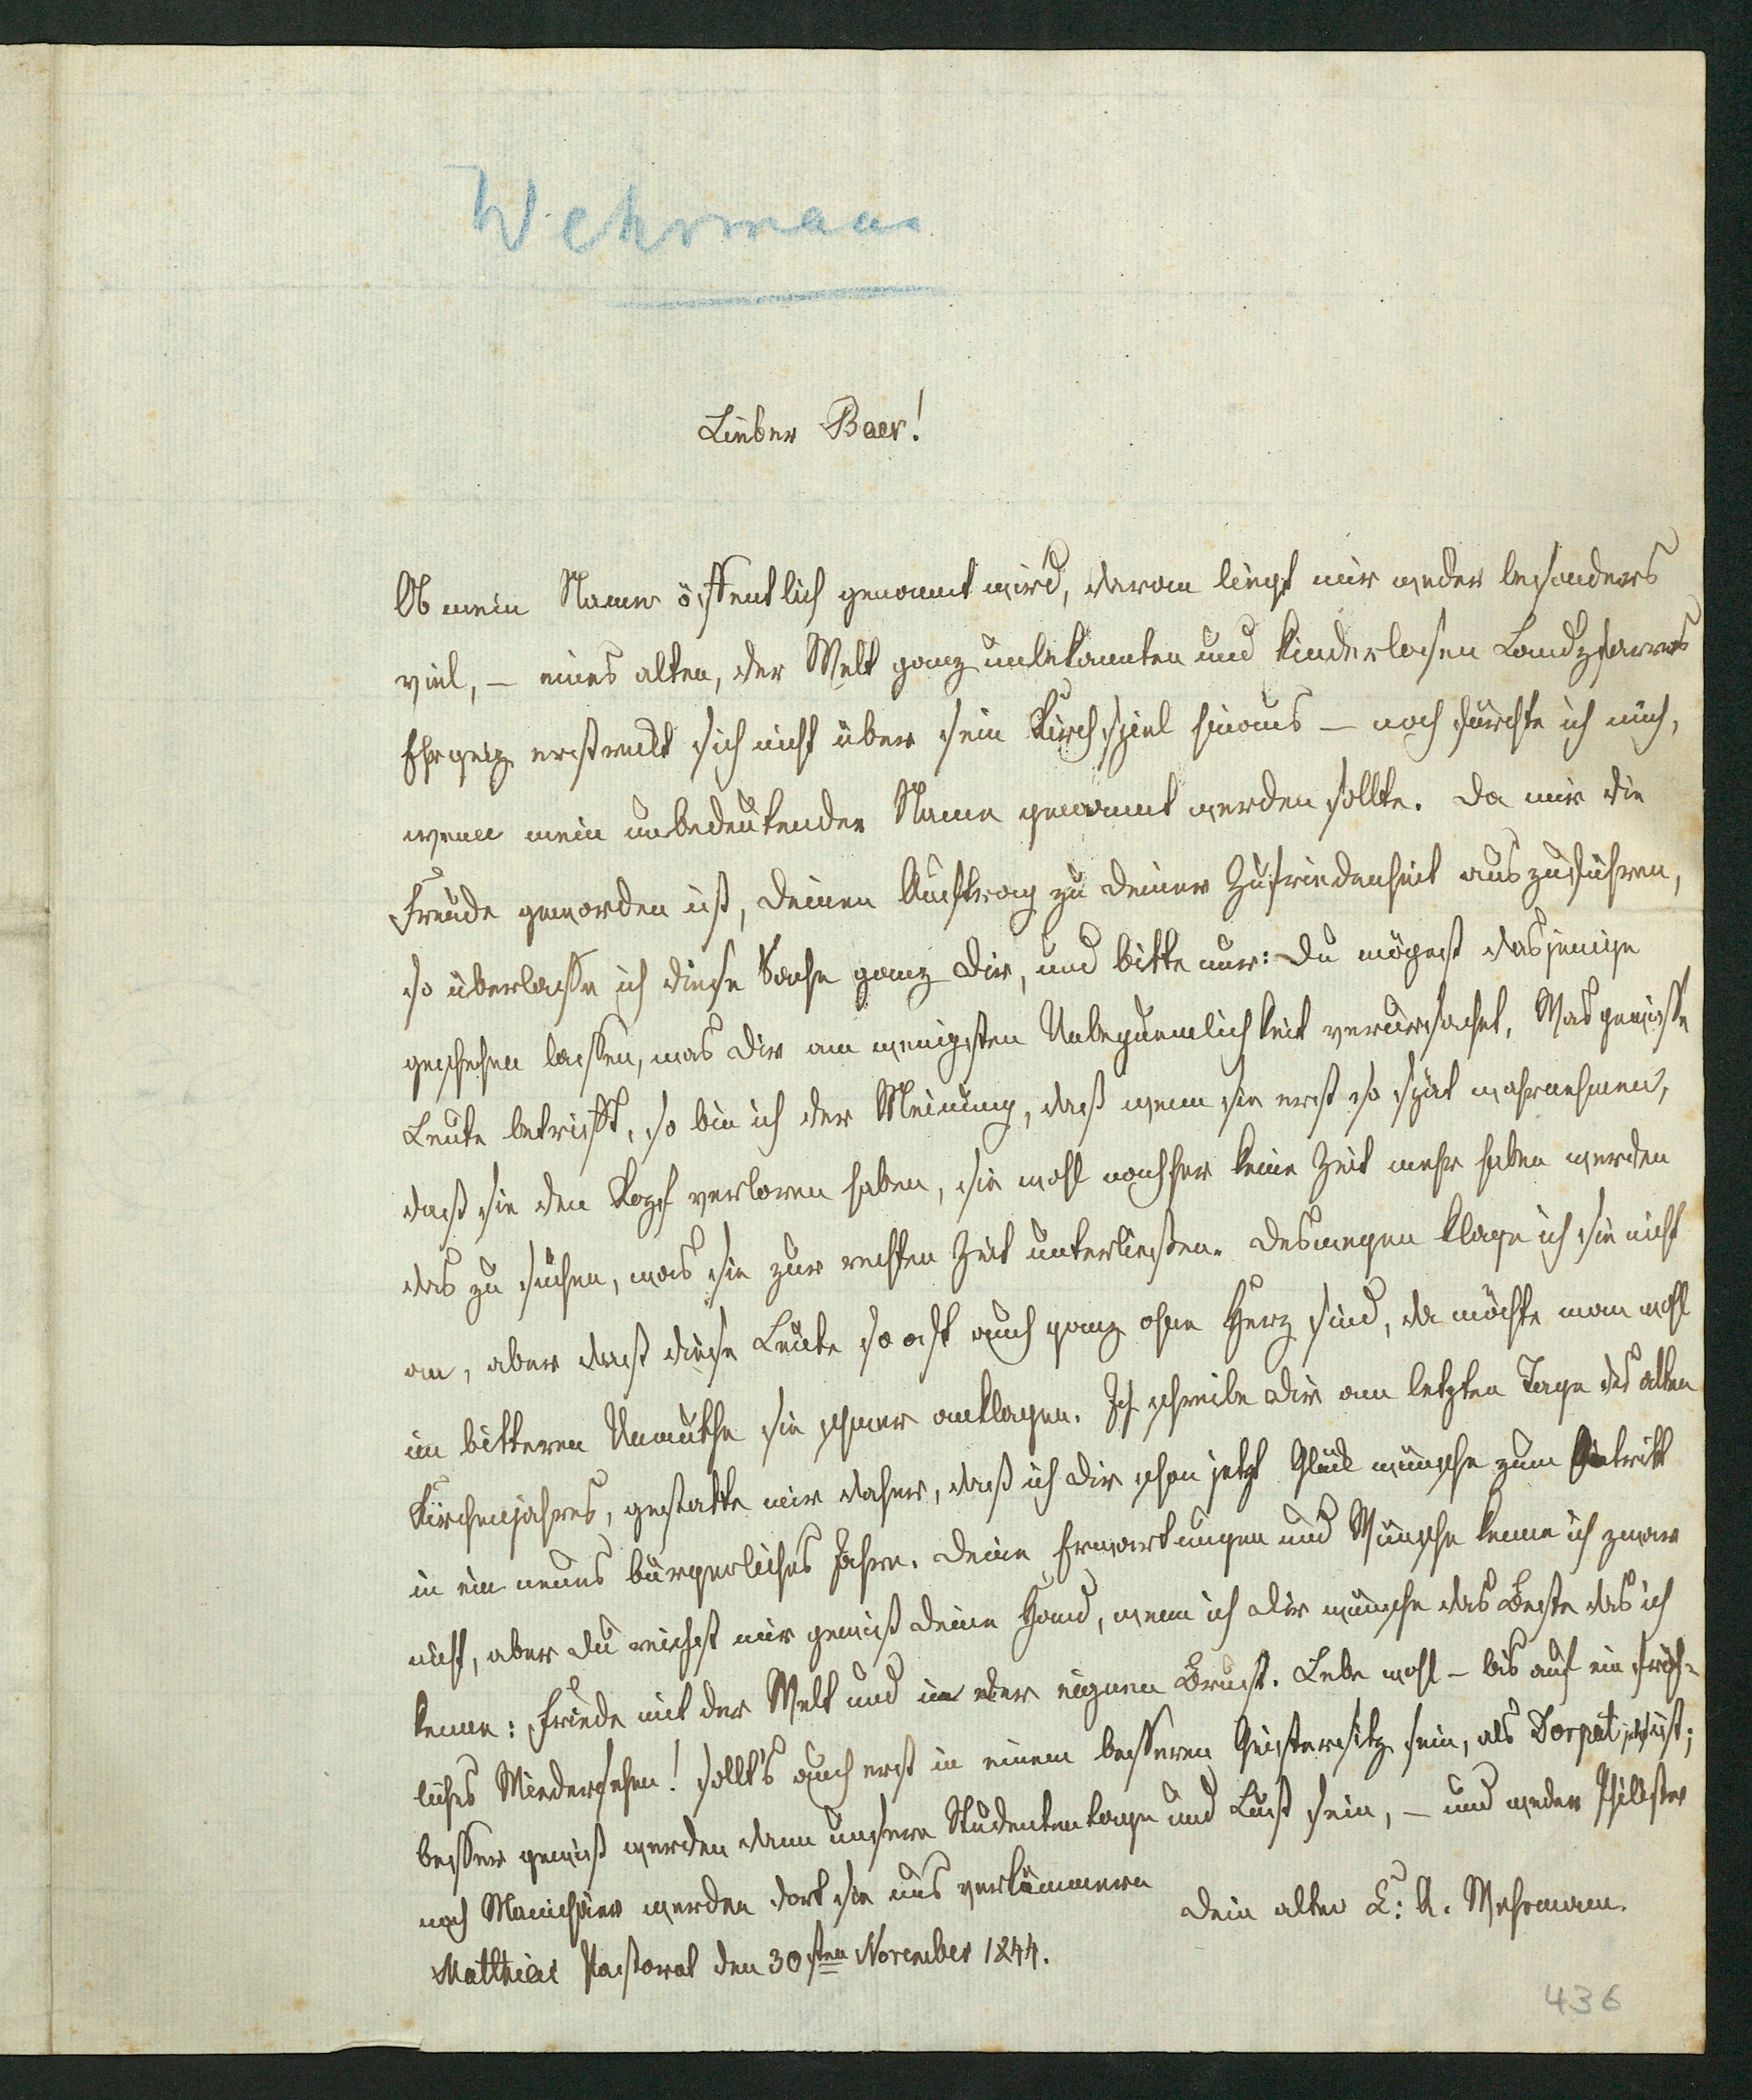 Wehrmann
Lieber Baer!
Ob mein Name öffentlich genannt wird, daran liegt mir weder besonders
viel, – eines alten, der Welt ganz unbekannten und kinderlosen Landpfarrers
Ehrgeiz erstreckt sich nicht über sein Kirchspiel hinaus – noch fürchte ich mich,
wenn mein unbedeutender Name genannt werden sollte. Da mir die
Freude geworden ist, Deinen Auftrag zu Deiner Zufriedenheit auszuführen,
so überlasse ich diese Sache ganz Dir, und bitte nur: Du mögest dasjenige
geschehen lassen, was Dir am wenigsten Unbequemlichkeit verursachet. Was gewisse
Leute betrifft, so bin ich der Meinung, daß wenn sie erst so spät wahrnehmen,
daß sie den Kopf verloren haben, sie wohl nachher keine Zeit mehr haben werden
das zu suchen, was sie zur rechten Zeit unterließen. Deswegen klage ich sie nicht
an, aber daß diese Leute so oft auch ganz ohne Herz sind, da möchte man wohl
im bitteren Unmuthe sie schwer anklagen. Ich schreibe Dir am letzten Tage des alten
Kirchenjahres, gestatte mir daher, daß ich Dir schon jetzt Glück wünsche zum Eintritt
in ein neues bürgerliches Jahr. Deine Erwartungen und Wünsche kenne ich zwar
nicht, aber Du reichst mir gewiß Deine Hand, wenn ich Dir wünsche das Beste das ich
kenne: Friede mit der Welt und in der eignen Brust. Lebe wohl – bis auf ein fröh-
liches Wiedersehen! sollt's auch erst in einem besseren Geistersitz sein, als Dorpat ist;
besser gewiß werden dann unsere Studententage und Lust sein, – und weder Philister
noch Manichäer werden dort sie uns verkümmern
Dein alter L: A. Wehrmann.
Matthiae Pastorat den 30sten November 1844.
436